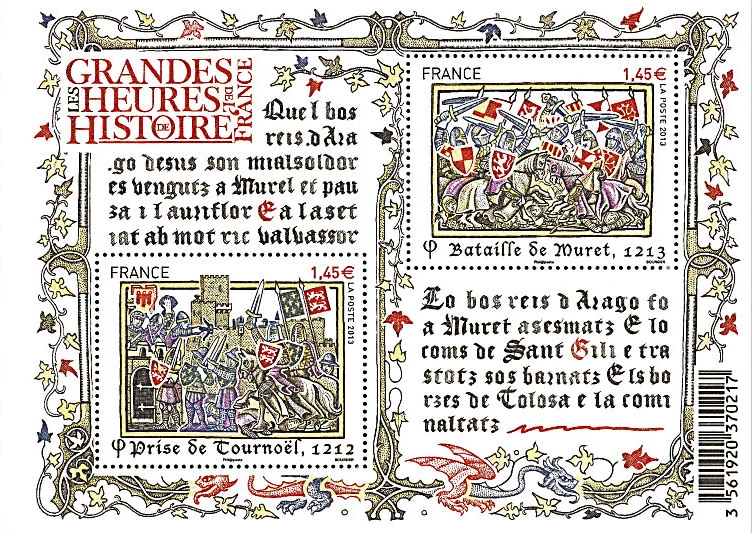 LES GRANDES
HEURES DE L'
HISTOIRE DE FRANCE
Quel bos
reis.d Ara
.go desus son mialsoldor
es vengutz a Murel et pau
za i l auriflor E a la set
iat ab mot ric valvassor
FRANCE 1,45€
LA POSTE 2013
φ Bataille de Muret, 1213
FRANCE 1,45€
LA POSTE 2013
φ Prise de Tournoël, 1212
Lo bos reis d Arago fo
a Muret asesmatz E lo
coms de Sant Gili e tra
stotz sos barnatz Els bo
rzes de Tolosa e la comi
naltatz
3 561920 370217